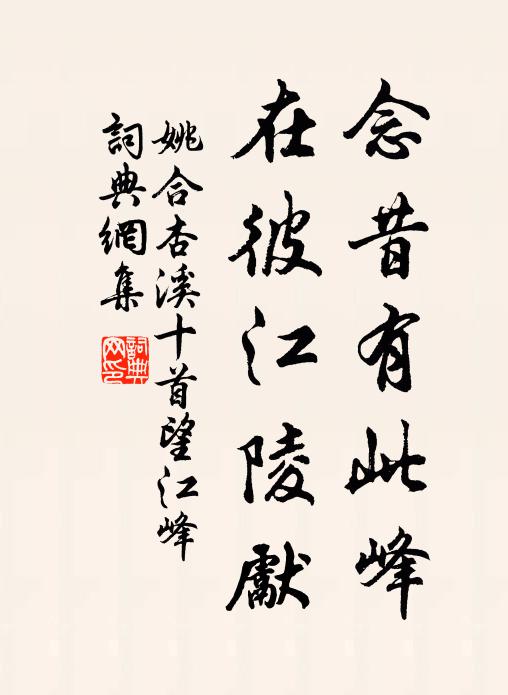 念昔有此峰
在彼江陵獻
姚合杏溪十首望江峰
詞典網集
詞典
网印